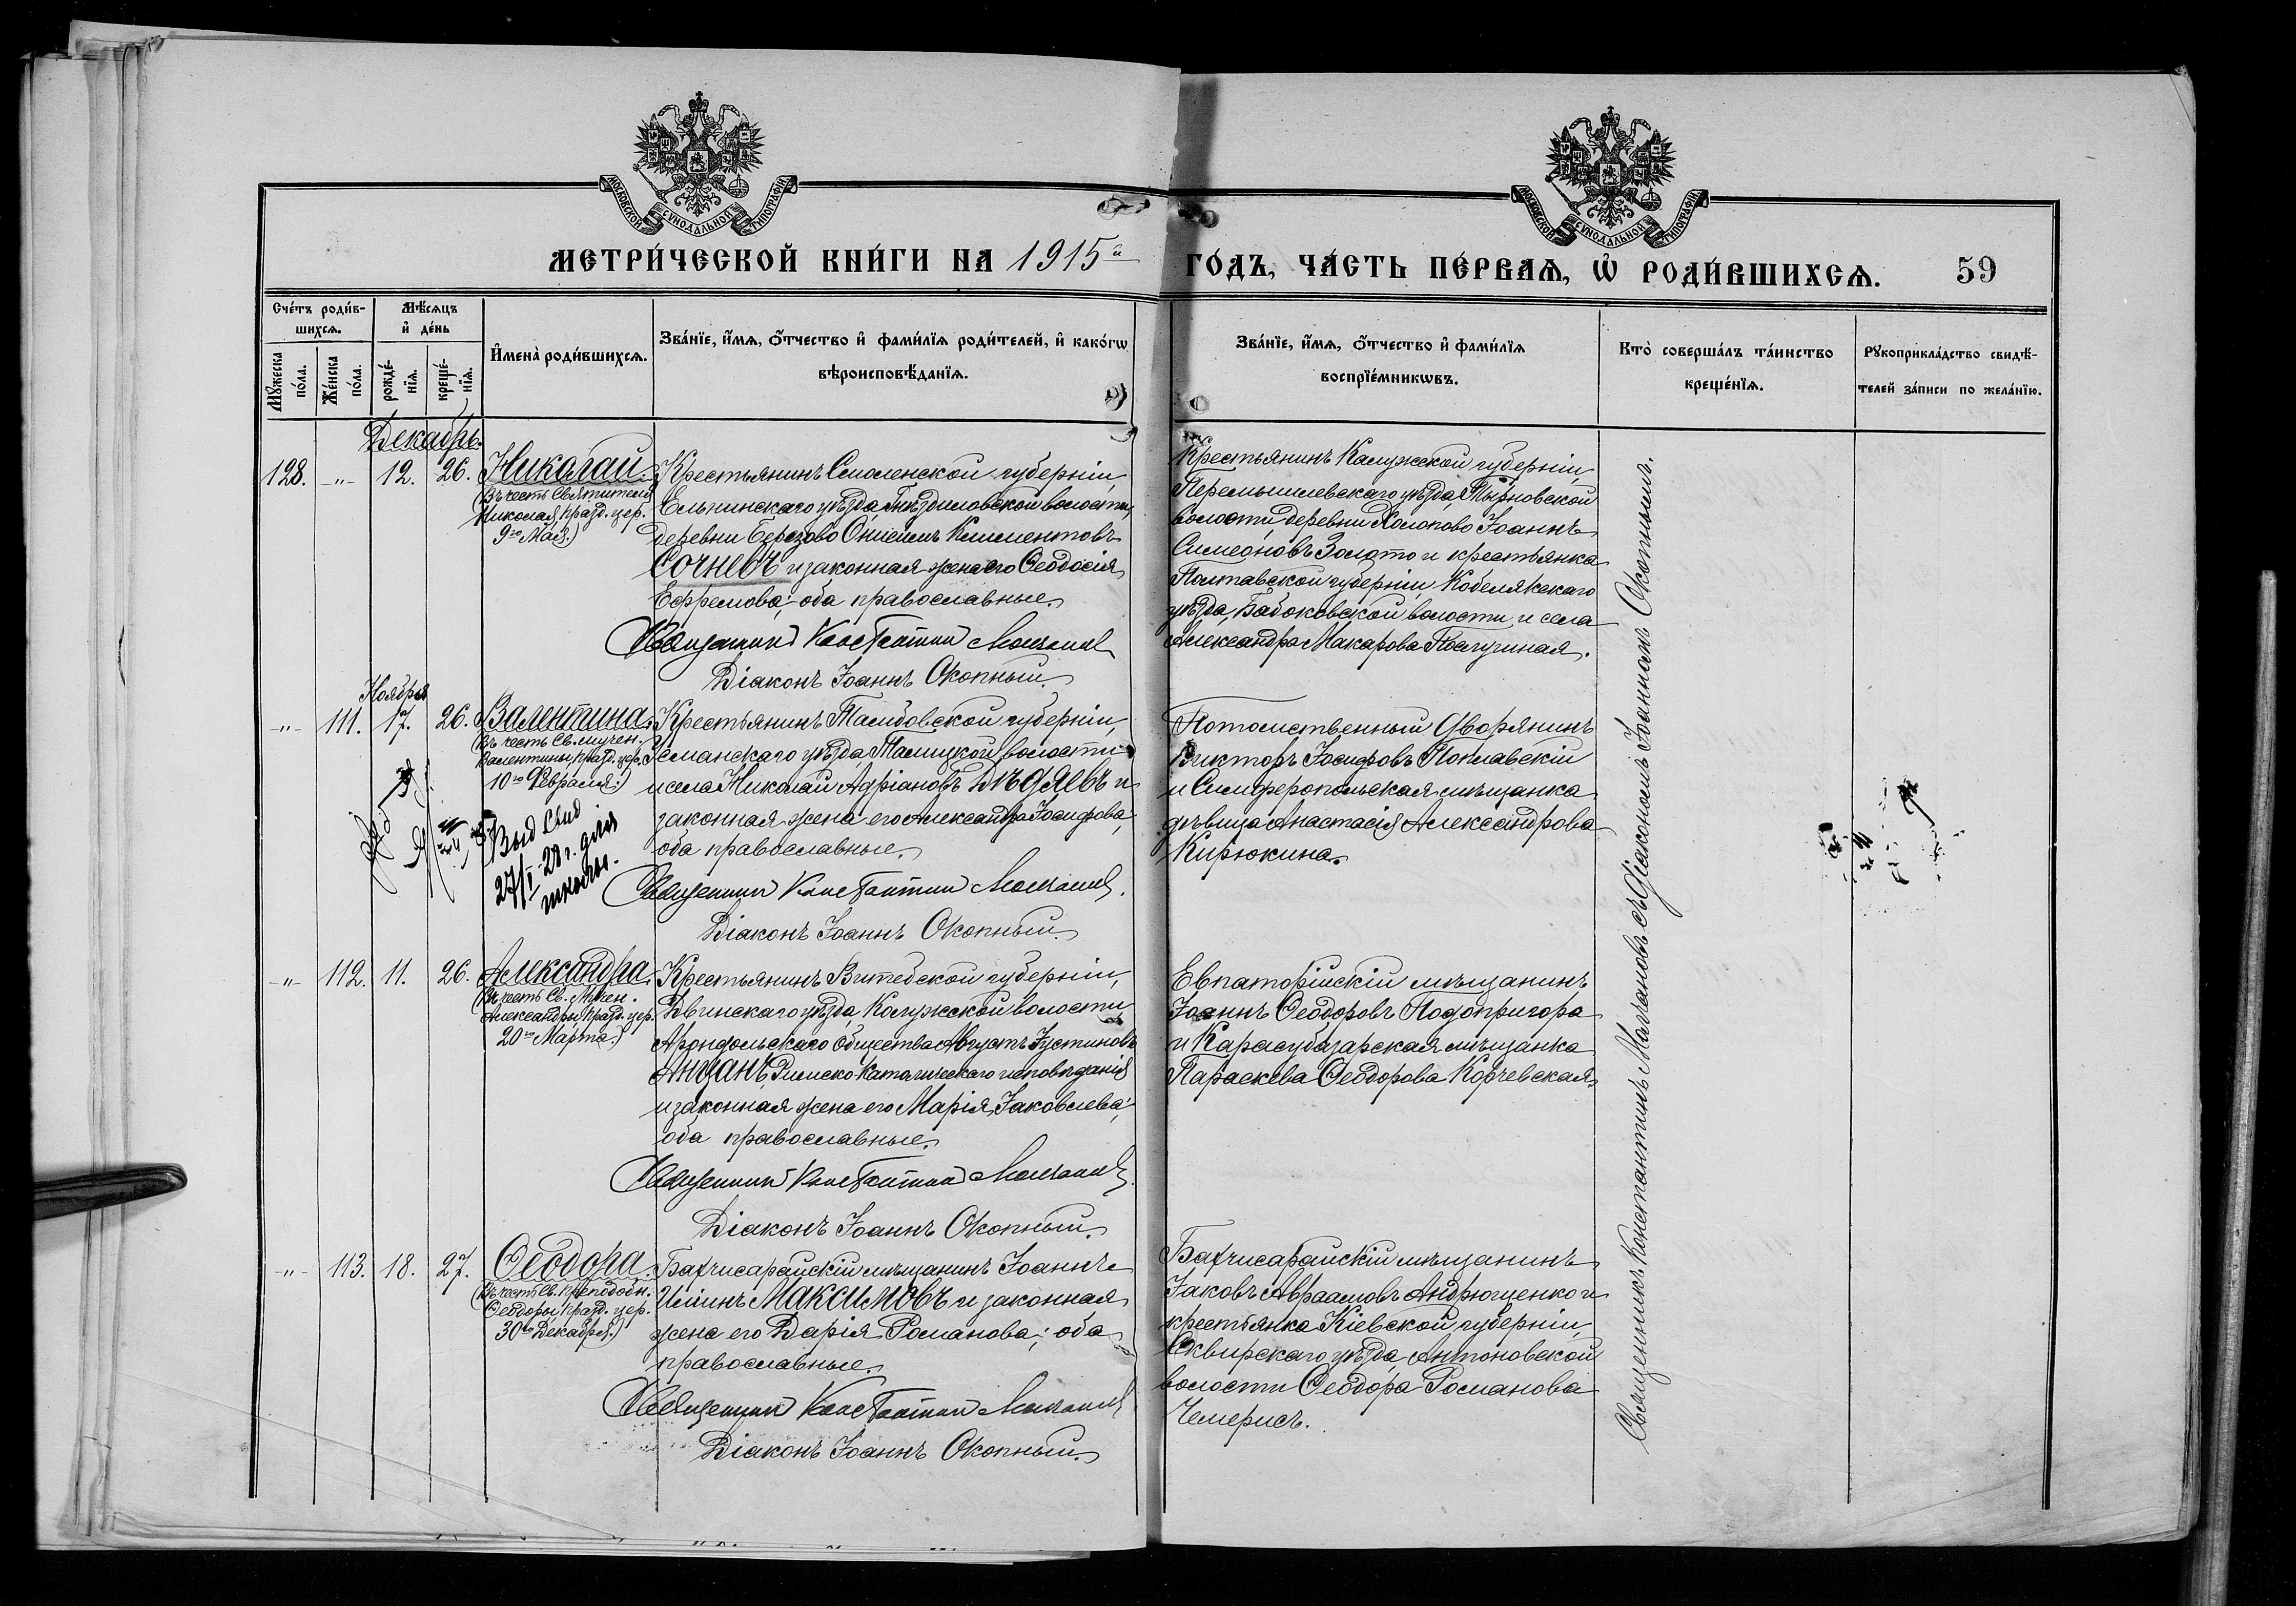 МОСКОВСКОЙ СѴНОДАЛЬНОЙ ТИПОГРАФІИ
МОСКОВСКОЙ СѴНОДАЛЬНОЙ ТИПОГРАФІИ
МЕТРИ́ЧЕСКОЙ КНИ́ГИ НА 1915й ГО́ДЪ, ЧА́СТЬ ПЕ́РВАѦ, Ѡ҆ РОДИ́ВШИХСѦ. 59
Сче́тъ роди́в-
шихсѧ.
Мꙋ́жеска
по́ла.
Же́нска
по́ла.
Мѣ́сѧцъ
и҆ де́нь
рожде́-
нїѧ.
креще́-
нїѧ.
И҆мена̀ роди́вшихсѧ.
Зва́нїе, и҆́мѧ, ѻ҆́тчество и҆ фами́лїѧ роди́телей, и҆ како́гѡ
вѣроисповѣ́данїѧ.
Зва́нїе, и҆́мѧ, ѻ҆́тчество и҆ фами́лїѧ
воспрїе́мникѡвъ.
Кто̀ соверша́лъ та́инство
креще́нїѧ.
Рꙋкоприкла́дство свидѣ́-
телей за́писи по жела́нїю.
Декабрь.
128. -"- 12. 26. Николай.
(Въ честь Святителя
Николая, празд. цер.
9го Мая.)
Крестьянинъ Смоленской губерніи,
Ельнинскаго уѣзда, Гнѣздиловской волости,
деревни Березово Онисимъ Климентовъ
Сочневъ и законная жена его Ѳеодосія
Ефремова; оба православные.
Священникъ Константинъ
Діаконъ Іоаннъ Окопный.
Крестьянинъ Калужской губерніи,
Перемышлевскаго уѣзда,
волости, деревни Холопово Іоаннъ
Симеоновъ Золото и крестьянка
Полтавской губерніи, Кобелякскаго
уѣзда, Бабоковской волости, и села
Александра Макарова
Ноября
-"- 111. 17. 26. Валентина.
(Въ честь Св. мучен.
Валентины, празд. цер.
10го Февраля.)
Выд Свид
27/I-28 г. для
школы.
Крестьянинъ Тамбовской губерніи,
Усманскаго уѣзда, Талицкой волости
и села Николай Адріановъ и
законная жена его Александра Іосифова;
оба православные.
Священникъ Константинъ
Діаконъ Іоаннъ Окопный.
Потомственный Дворянинъ
Викторъ Іосифовъ Поплавскій
и Симферопольская мѣщанка
дѣвица Анастасія Александрова
Кирюкина.
-"- 112. 11. 26. Александра.
(Въ честь Св. Мучен.
Александры празд. цер.
20го Марта.)
Крестьянинъ Витебской губерніи,
Двинскаго уѣзда, Колужской волости,
Арондольскаго Общества Августъ Іустиновъ
Анцанъ, Римско-Католическаго исповѣданія
и законная жена его Марія Іаковлева;
оба православные.
Священникъ Константинъ
Діаконъ Іоаннъ Окопный.
Евпаторійскій мѣщанинъ
Іоаннъ Ѳеодоровъ Подопригора
и Карасубазарская мѣщанка
Параскева Ѳеодорова Корчевская.
-"- 113. 18. 27. Ѳеодора.
(Въ честь Св. Преподобн.
Ѳеодоры, празд. цер.
30го Декабря.)
Бахчисарайскій мѣщанинъ Іоаннъ
Иліинъ Максимовъ и законная
жена его Дарія Романова; оба
православные.
Священникъ Константинъ
Діаконъ Іоаннъ Окопный.
Бахчисарайскій мѣщанинъ
Іаковъ Авраамовъ Андрющенко и
крестьянка Кіевской губерніи,
Сквирскаго уѣзда, Антоновской
волости Ѳеодора Романова
Чемерисъ.
Священникъ Константинъ съ діакономъ Іоанномъ Окопнымъ.